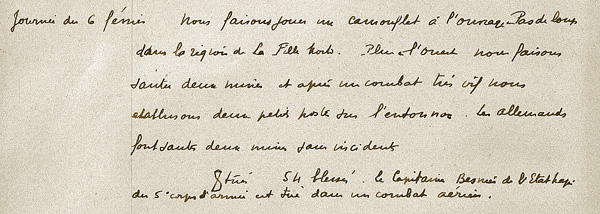 Journée du 6 février Nous faisons jouer un camouflet à l'ouvrage Pas de loup
dans la région de La Fille Morte. Plus à l'Ouest nous faisons
sauter deux mines et après un combat très vif nous
etablissons deux petits postes sur l'entonnoir. Les allemands
font sauter deux mines sans incident
8 tués 54 blessés. Le Capitaine Besnier de l'Etat Major
du 5e corps d'armée est tué dans un combat aérien.